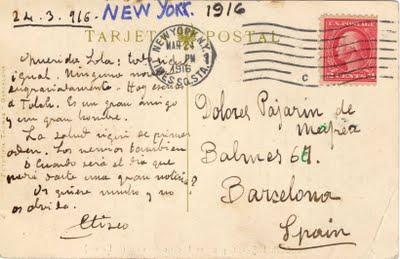 24.3.916. NEW YORK. 1916
TARJETA POSTAL
NEW YORK, N.Y.
MAR 24
PM
1916
TIMES SQ. STA.
1
C
U.S. POSTAGE
2 CENTS 2
Querida Lola: todavía
igual. Ninguno
. Hoy
a . Es un gran amigo
y un gran hombre.
La salud sigue de primer
orden. Los nervios también
¿Cuando será el día que
darte una gran noticia?
Os quiere mucho y no
os olvida.
Eliseo
Dolores Pajarin de
Balmes 67.
Barcelona
Spain